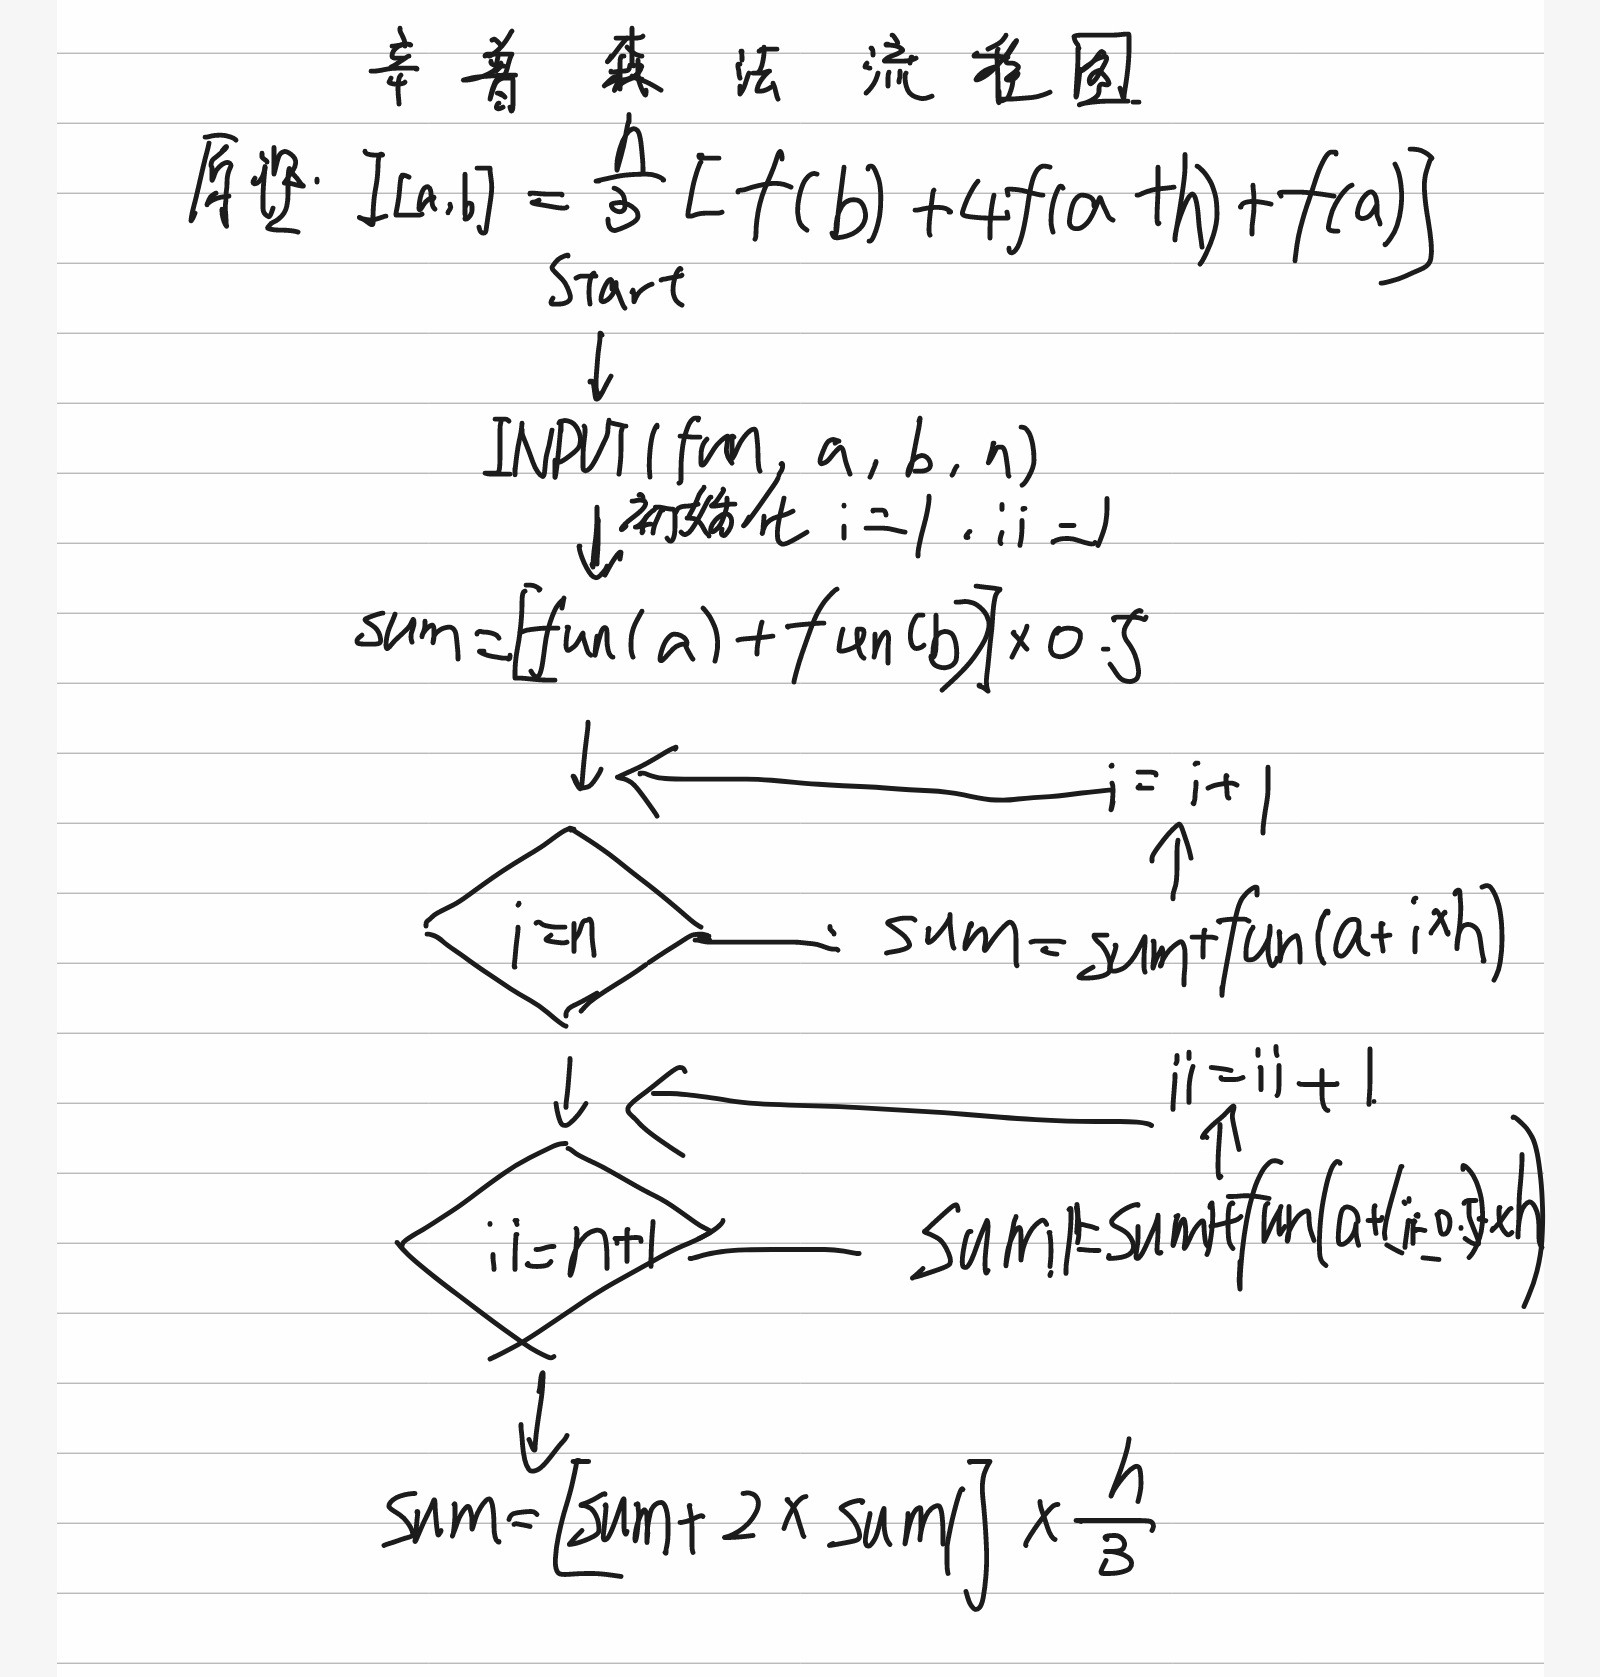 辛普森法流程图
原理. I[a,b] = h/3 [f(b)+4f(a+h)+f(a)]
Start
INPUT(fun, a, b, n)
初始化 i=1. ii=1
sum=[fun(a)+fun(b)]×0.5
i = i+1
i=n
sum=sum+fun(a+i×h)
ii=ii+1
ii=n+1
sum1=sum1+fun(a+(ii-0.5)×h)
sum=[sum+2×sum1]×h/3